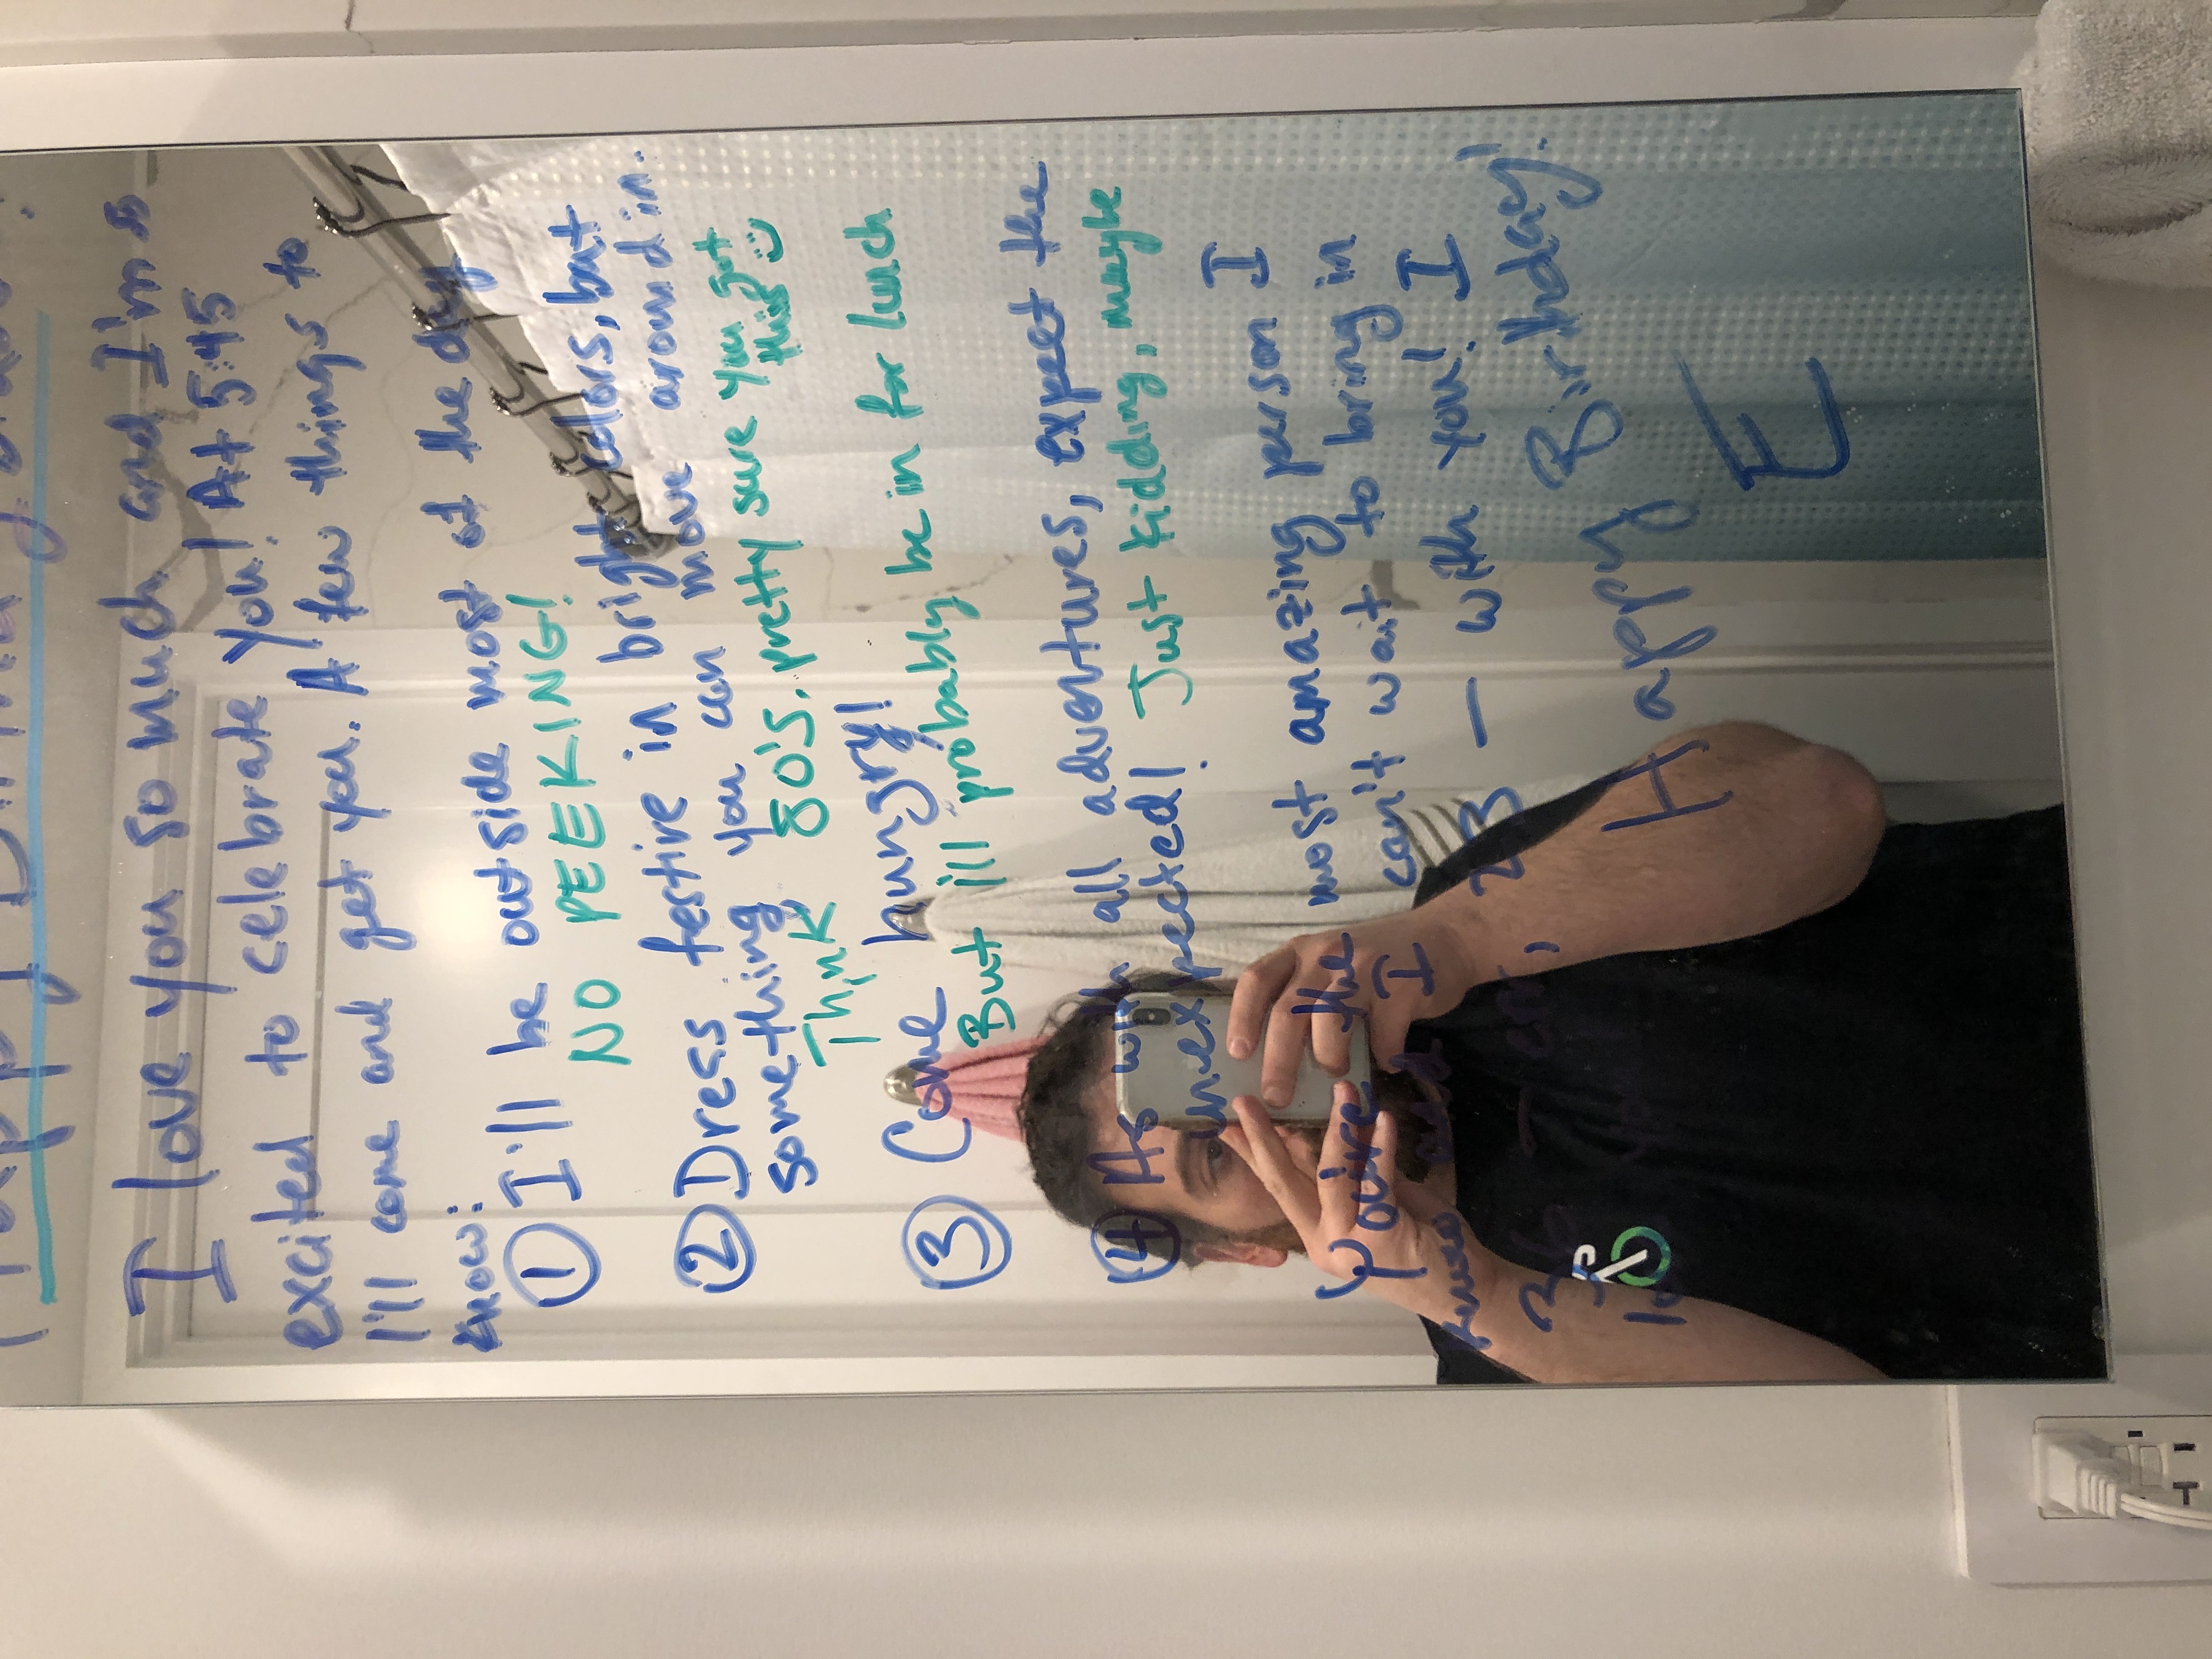 Happy Birthday
I love you so much and I'm so
excited to celebrate you! At 5:45
I'll come and get you. A few things to
know:
① I'll be outside most of the day
NO PEEKING!
② Dress festive in bright colors, but
something you can move around in.
Think 80's. pretty sure you got
this
③ Come hungry!
But ill probably be in for lunch
④ As with all adventures, expect the
unexpected! Just kidding, maybe
You're the most amazing person I
know and I can't wait to bring in
36 23 — with you! I
you
Happy Birthday!
E